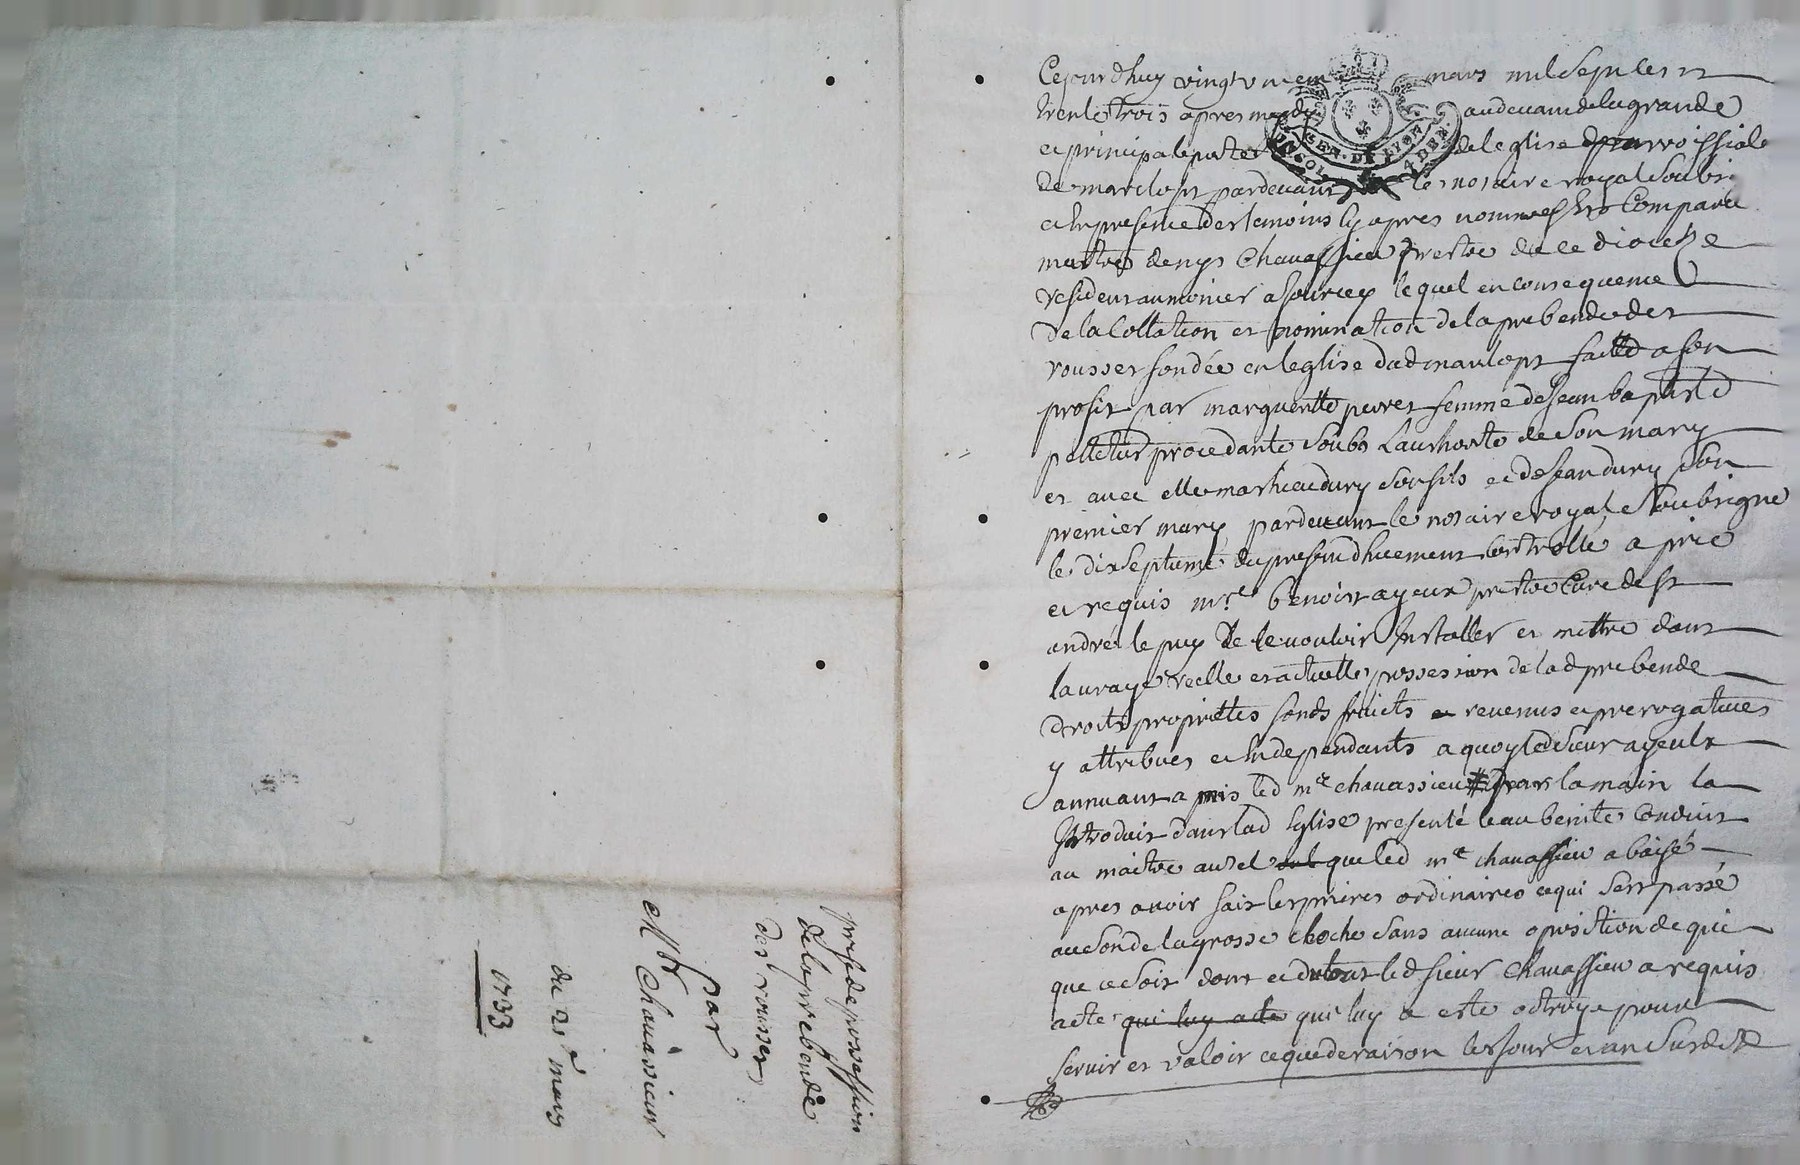 prise de possession
de la prebende
des rousses
par
Mr Chauassieux
du 21e mars
1733
Cejourdhuy vingt vniem mars mil sept cens
trente trois apres midy au deuant de la grande
et principale porte de leglise parroissiale
de marclopt pardeuant le notaire royal soubsi
et en presence des temoins cy apres nommes est Comparu
maitre denys Chauassieu prestre de ce diocese
residant aumonier a le quel en consequence
De la Collation et nomination de la prebende des
rousses fondée en leglise dud marclopt faitte a son
profit par margueritte perret femme de Jean baptiste
procedante soubs lauthorité de son mary
et auec elle mathieu dury son fils et de Jean dury son
premier mary pardeuant le notaire royal soubsigne
le dixseptieme du present dhuement controllé a prié
et requis mre benoist ayeux prestre Curé de st
andré le puy de le vouloir Installer et mettre dans
la vraye reelle et actuelle possession de lad prebende
droits proprietes fonds fruicts et revenus et prerogatiues
y attribues et independants a quoy led sieur ayeulx
annuant a pris led me chauassieu par la main la
Introduit dans lad Eglise presenté leau benite Conduit
au maitre autel que led me chauassieu a baisé
apres auoir fait les prieres ordinaires ce qui sest passé
au son de la grosse cloche sans aucune oposition de qui
que ce soit dont et du tout led sieur Chauassieu a requis
acte qui luy acte qui luy a esté octroyé pour
seruir et valoir ce que de raison les jour et an susdits
GEN. DE LYON